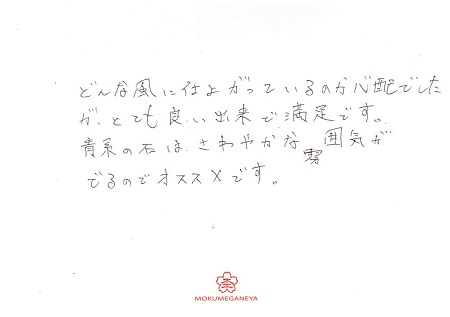 どんな風に仕上がっているのか心配でした
が、とても良い出来で満足です。
青系の石は、さわやかな雰囲気が
でるのでオススメです。
MOKUMEGANEYA